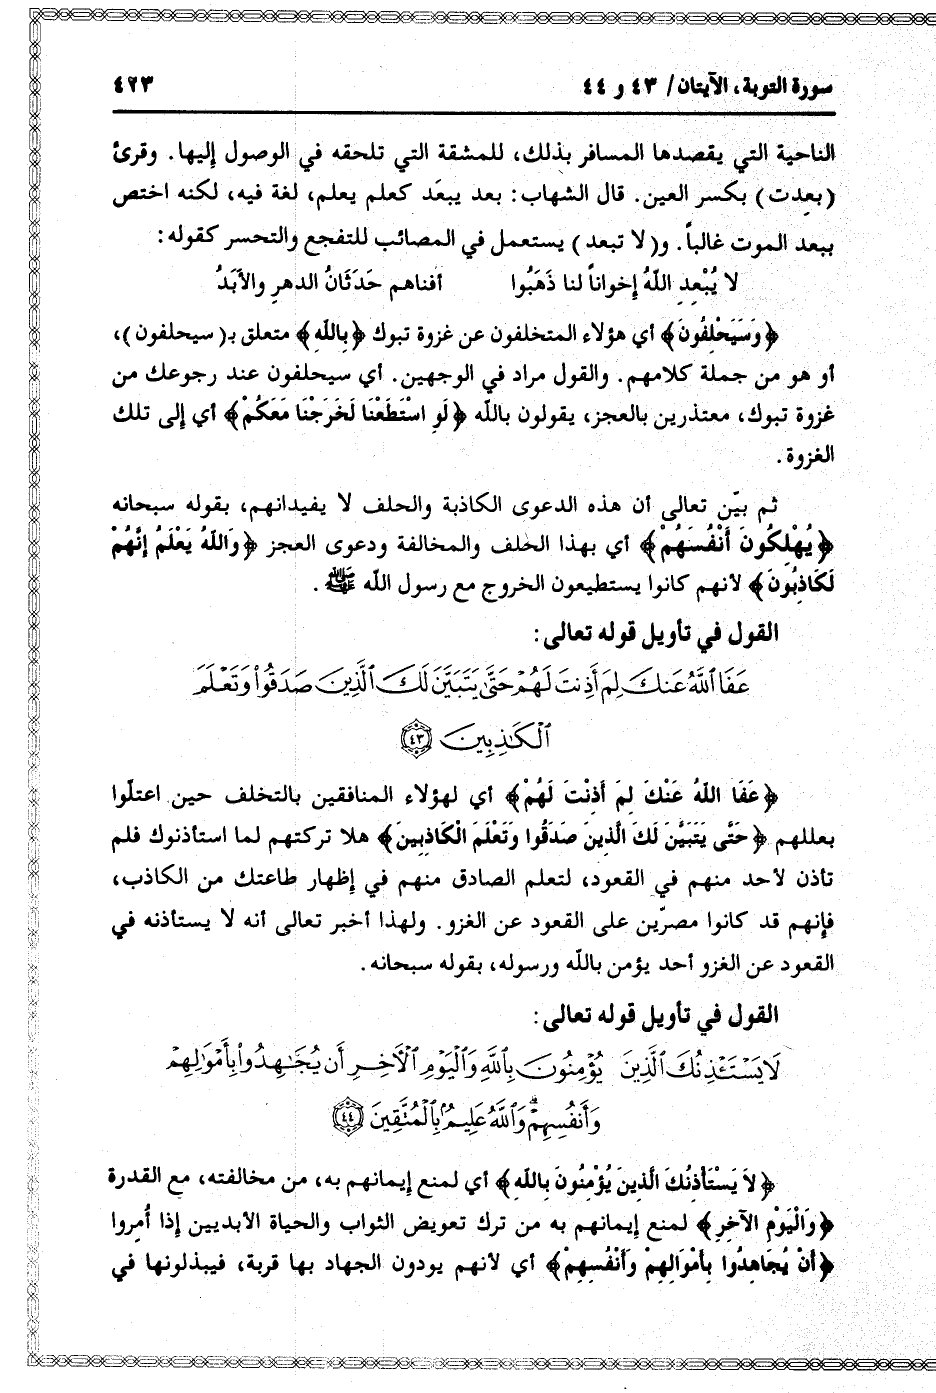 سورة التوبة، الآيتان/ ٤٣ و ٤٤ ٤٢٣
الناحية التي يقصدها المسافر بذلك، للمشقة التي تلحقه في الوصول إليها. وقرئ
(بعِدت) بكسر العين. قال الشهاب: بعد يبعَد كعلم يعلم، لغة فيه، لكنه اختص
ببعد الموت غالباً. و(لا تبعد) يستعمل في المصائب للتفجع والتحسر كقوله:
لا يُبْعِدِ اللّهُ إخواناً لنا ذَهَبُوا أفناهم حَدَثَانُ الدهرِ والأبَدُ
﴿وَسَيَحْلِفُونَ﴾ أي هؤلاء المتخلفون عن غزوة تبوك ﴿بِاللّهِ﴾ متعلق بـ(سيحلفون)،
أو هو من جملة كلامهم. والقول مراد في الوجهين. أي سيحلفون عند رجوعك من
غزوة تبوك، معتذرين بالعجز، يقولون باللّه ﴿لَوِ اسْتَطَعْنَا لَخَرَجْنَا مَعَكُمْ﴾ أي إلى تلك
الغزوة.
ثم بيّن تعالى أن هذه الدعوى الكاذبة والحلف لا يفيدانهم، بقوله سبحانه
﴿يُهْلِكُونَ أَنْفُسَهُمْ﴾ أي بهذا الحلف والمخالفة ودعوى العجز ﴿وَاللّهُ يَعْلَمُ إِنَّهُمْ
لَكَاذِبُونَ﴾ لأنهم كانوا يستطيعون الخروج مع رسول اللّه ﷺ.
القول في تأويل قوله تعالى:
عَفَا ٱللَّهُ عَنكَ لِمَ أَذِنتَ لَهُمْ حَتَّىٰ يَتَبَيَّنَ لَكَ ٱلَّذِينَ صَدَقُواْ وَتَعْلَمَ
ٱلْكَٰذِبِينَ ٤٣
﴿عَفَا اللّهُ عَنْكَ لِمَ أَذِنْتَ لَهُمْ﴾ أي لهؤلاء المنافقين بالتخلف حين اعتلّوا
بعللهم ﴿حَتَّى يَتَبَيَّنَ لَكَ الَّذِينَ صَدَقُوا وَتَعْلَمَ الْكَاذِبِينَ﴾ هلا تركتهم لما استأذنوك فلم
تأذن لأحد منهم في القعود، لتعلم الصادق منهم في إظهار طاعتك من الكاذب،
فإنهم قد كانوا مصرّين على القعود عن الغزو. ولهذا أخبر تعالى أنه لا يستأذنه في
القعود عن الغزو أحد يؤمن باللّه ورسوله، بقوله سبحانه.
القول في تأويل قوله تعالى:
لَا يَسْتَـْٔذِنُكَ ٱلَّذِينَ يُؤْمِنُونَ بِٱللَّهِ وَٱلْيَوْمِ ٱلْآخِرِ أَن يُجَٰهِدُواْ بِأَمْوَٰلِهِمْ
وَأَنفُسِهِمْ ۗ وَٱللَّهُ عَلِيمٌۢ بِٱلْمُتَّقِينَ ٤٤
﴿لاَ يَسْتَأْذِنُكَ الَّذِينَ يُؤْمِنُونَ بِاللّهِ﴾ أي لمنع إيمانهم به، من مخالفته، مع القدرة
﴿وَالْيَوْمِ الآخِرِ﴾ لمنع إيمانهم به من ترك تعويض الثواب والحياة الأبديين إذا أُمروا
﴿أَنْ يُجَاهِدُوا بِأَمْوَالِهِمْ وَأَنْفُسِهِمْ﴾ أي لأنهم يودون الجهاد بها قربة، فيبذلونها في